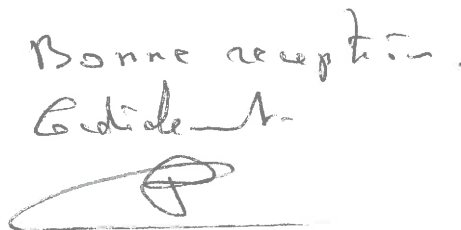 Bonne reception.
Cordialement